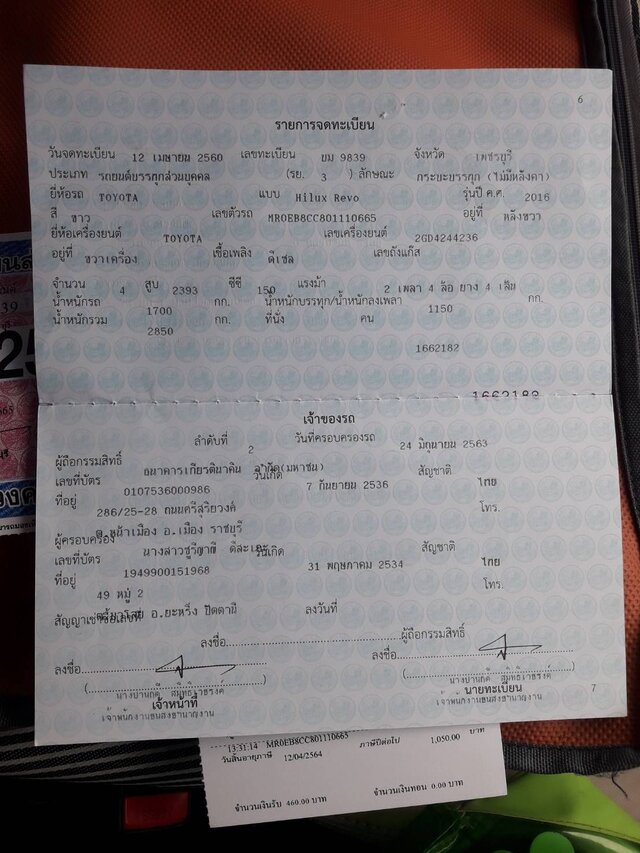 6
รายการจดทะเบียน
วันจดทะเบียน 12 เมษายน 2560 เลขทะเบียน ยม 9839 จังหวัด เพชรบุรี
ประเภท รถยนต์บรรทุกส่วนบุคคล (รย. 3 ) ลักษณะ กระบะบรรทุก (ไม่มีหลังคา)
ยี่ห้อรถ TOYOTA แบบ Hilux Revo รุ่นปี ค.ศ. 2016
สี ขาว เลขตัวรถ MR0EB8CC801110665 อยู่ที่ หลังขวา
ยี่ห้อเครื่องยนต์ TOYOTA เลขเครื่องยนต์ 2GD4244236
อยู่ที่ ขวาเครื่อง เชื้อเพลิง ดีเซล เลขถังแก๊ส
จำนวน 4 สูบ 2393 ซีซี 150 แรงม้า 2 เพลา 4 ล้อ ยาง 4 เส้น
น้ำหนักรถ 1700 กก. น้ำหนักบรรทุก/น้ำหนักลงเพลา 1150 กก.
น้ำหนักรวม 2850 กก. ที่นั่ง คน
1662182
1662182
เจ้าของรถ
ลำดับที่ 2 วันที่ครอบครองรถ 24 มิถุนายน 2563
ผู้ถือกรรมสิทธิ์ ธนาคารเกียรตินาคิน จำกัด(มหาชน)
เลขที่บัตร 0107536000986 วันเกิด 7 กันยายน 2536 สัญชาติ ไทย
ที่อยู่ 286/25-28 ถนนศรีสุริยวงค์ โทร.
ต.หน้าเมือง อ.เมือง ราชบุรี
ผู้ครอบครอง นางสาวชูรีญาณี
เลขที่บัตร 1949900151968 วันเกิด 31 พฤษภาคม 2534 สัญชาติ ไทย
ที่อยู่ 49 หมู่ 2 โทร.
อ.ยะหริ่ง ปัตตานี
สัญญาเช่าซื้อเลขที่ ลงวันที่
ลงชื่อ ผู้ถือกรรมสิทธิ์
ลงชื่อ ลงชื่อ
เจ้าหน้าที่ นายทะเบียน
เจ้าพนักงานขนส่งชำนาญงาน เจ้าพนักงานขนส่งชำนาญงาน
7
13:31:14 MR0EB8CC801110665 ภาษีปีต่อไป 1,050.00 บาท
วันสิ้นอายุภาษี 12/04/2564
จำนวนเงินรับ 460.00 บาท จำนวนเงินทอน 0.00 บาท